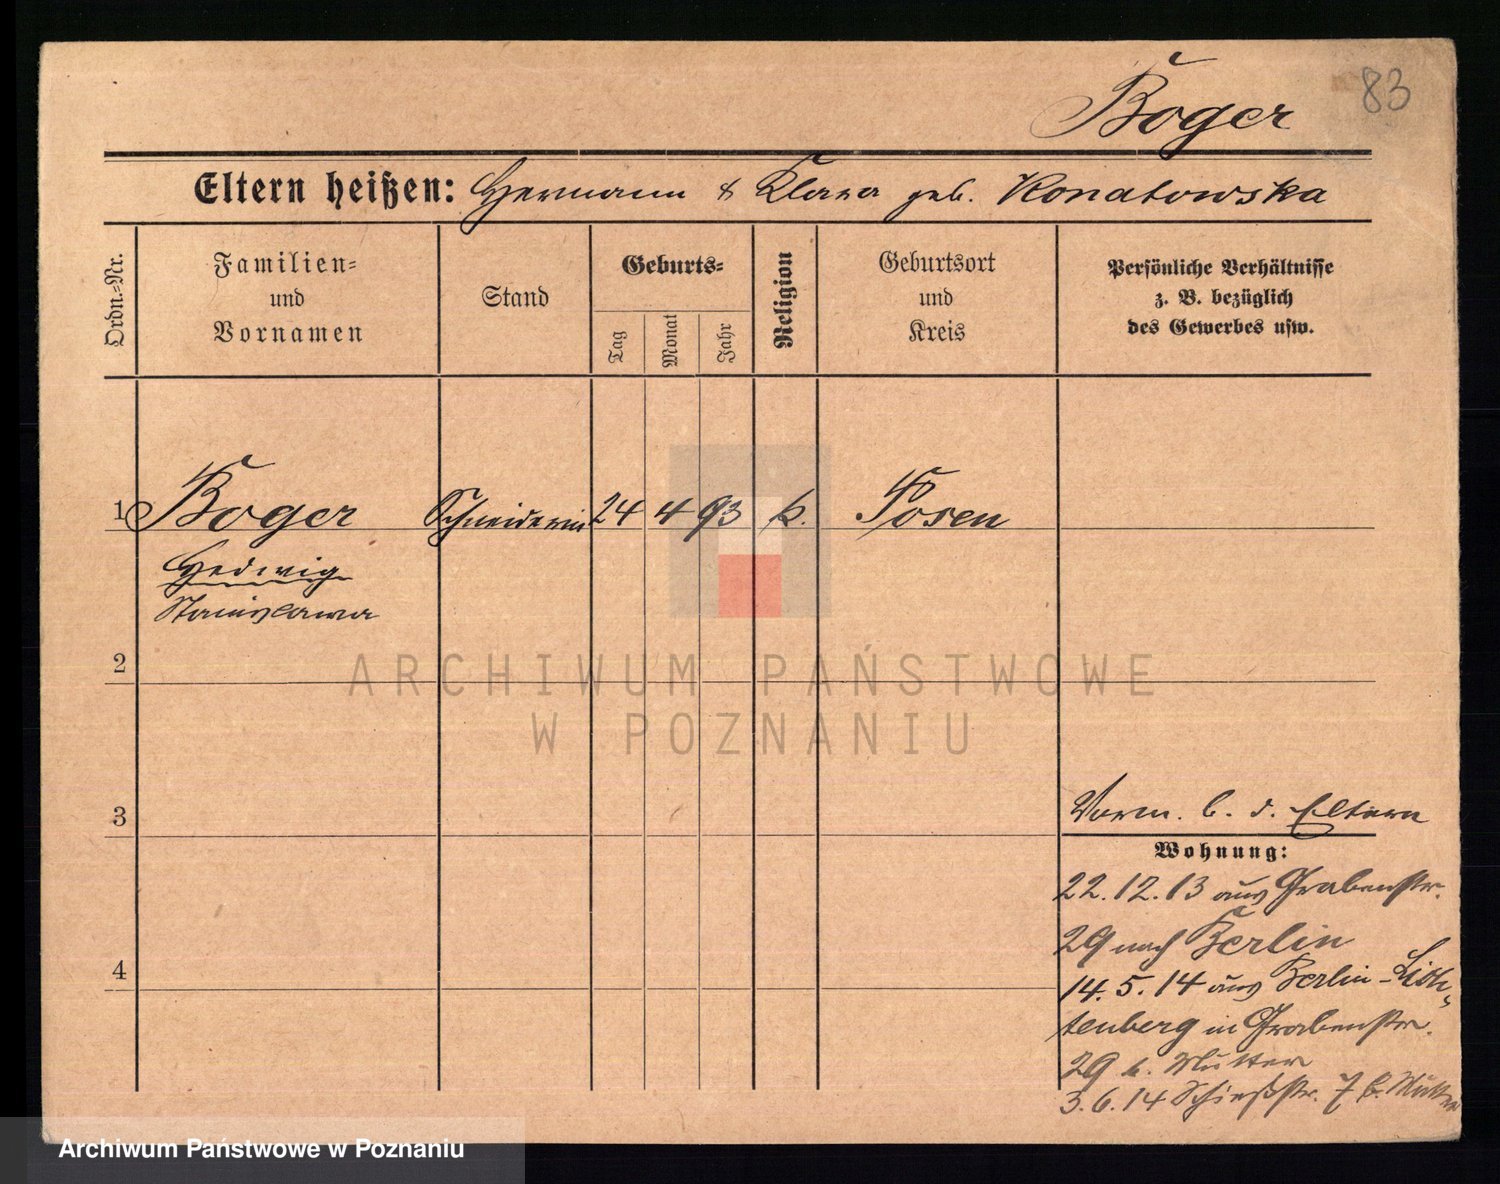 83
Boger
Eltern heißen: Hermann & Klara geb. Konatowska
Ordn.-Nr.
Familien-
und
Vornamen
Stand
Geburts-
Tag
Monat
Jahr
Religion
Geburtsort
und
Kreis
Persönliche Verhältnisse
z. B. bezüglich
des Gewerbes usw.
1 Boger Schneiderin 24 4 93 k. Posen
Hedwig
Stanislawa
2
ARCHIWUM PAŃSTWOWE
W POZNANIU
3
Vorm. b. d. Eltern
Wohnung:
22.12.13 aus Grabenstr.
29 nach Berlin
14.5.14 aus Berlin-Lich-
4
tenberg in Grabenstr.
29 b. Mutter
3.6.14 Schießstr. 7 b. Mutter
Archiwum Państwowe w Poznaniu